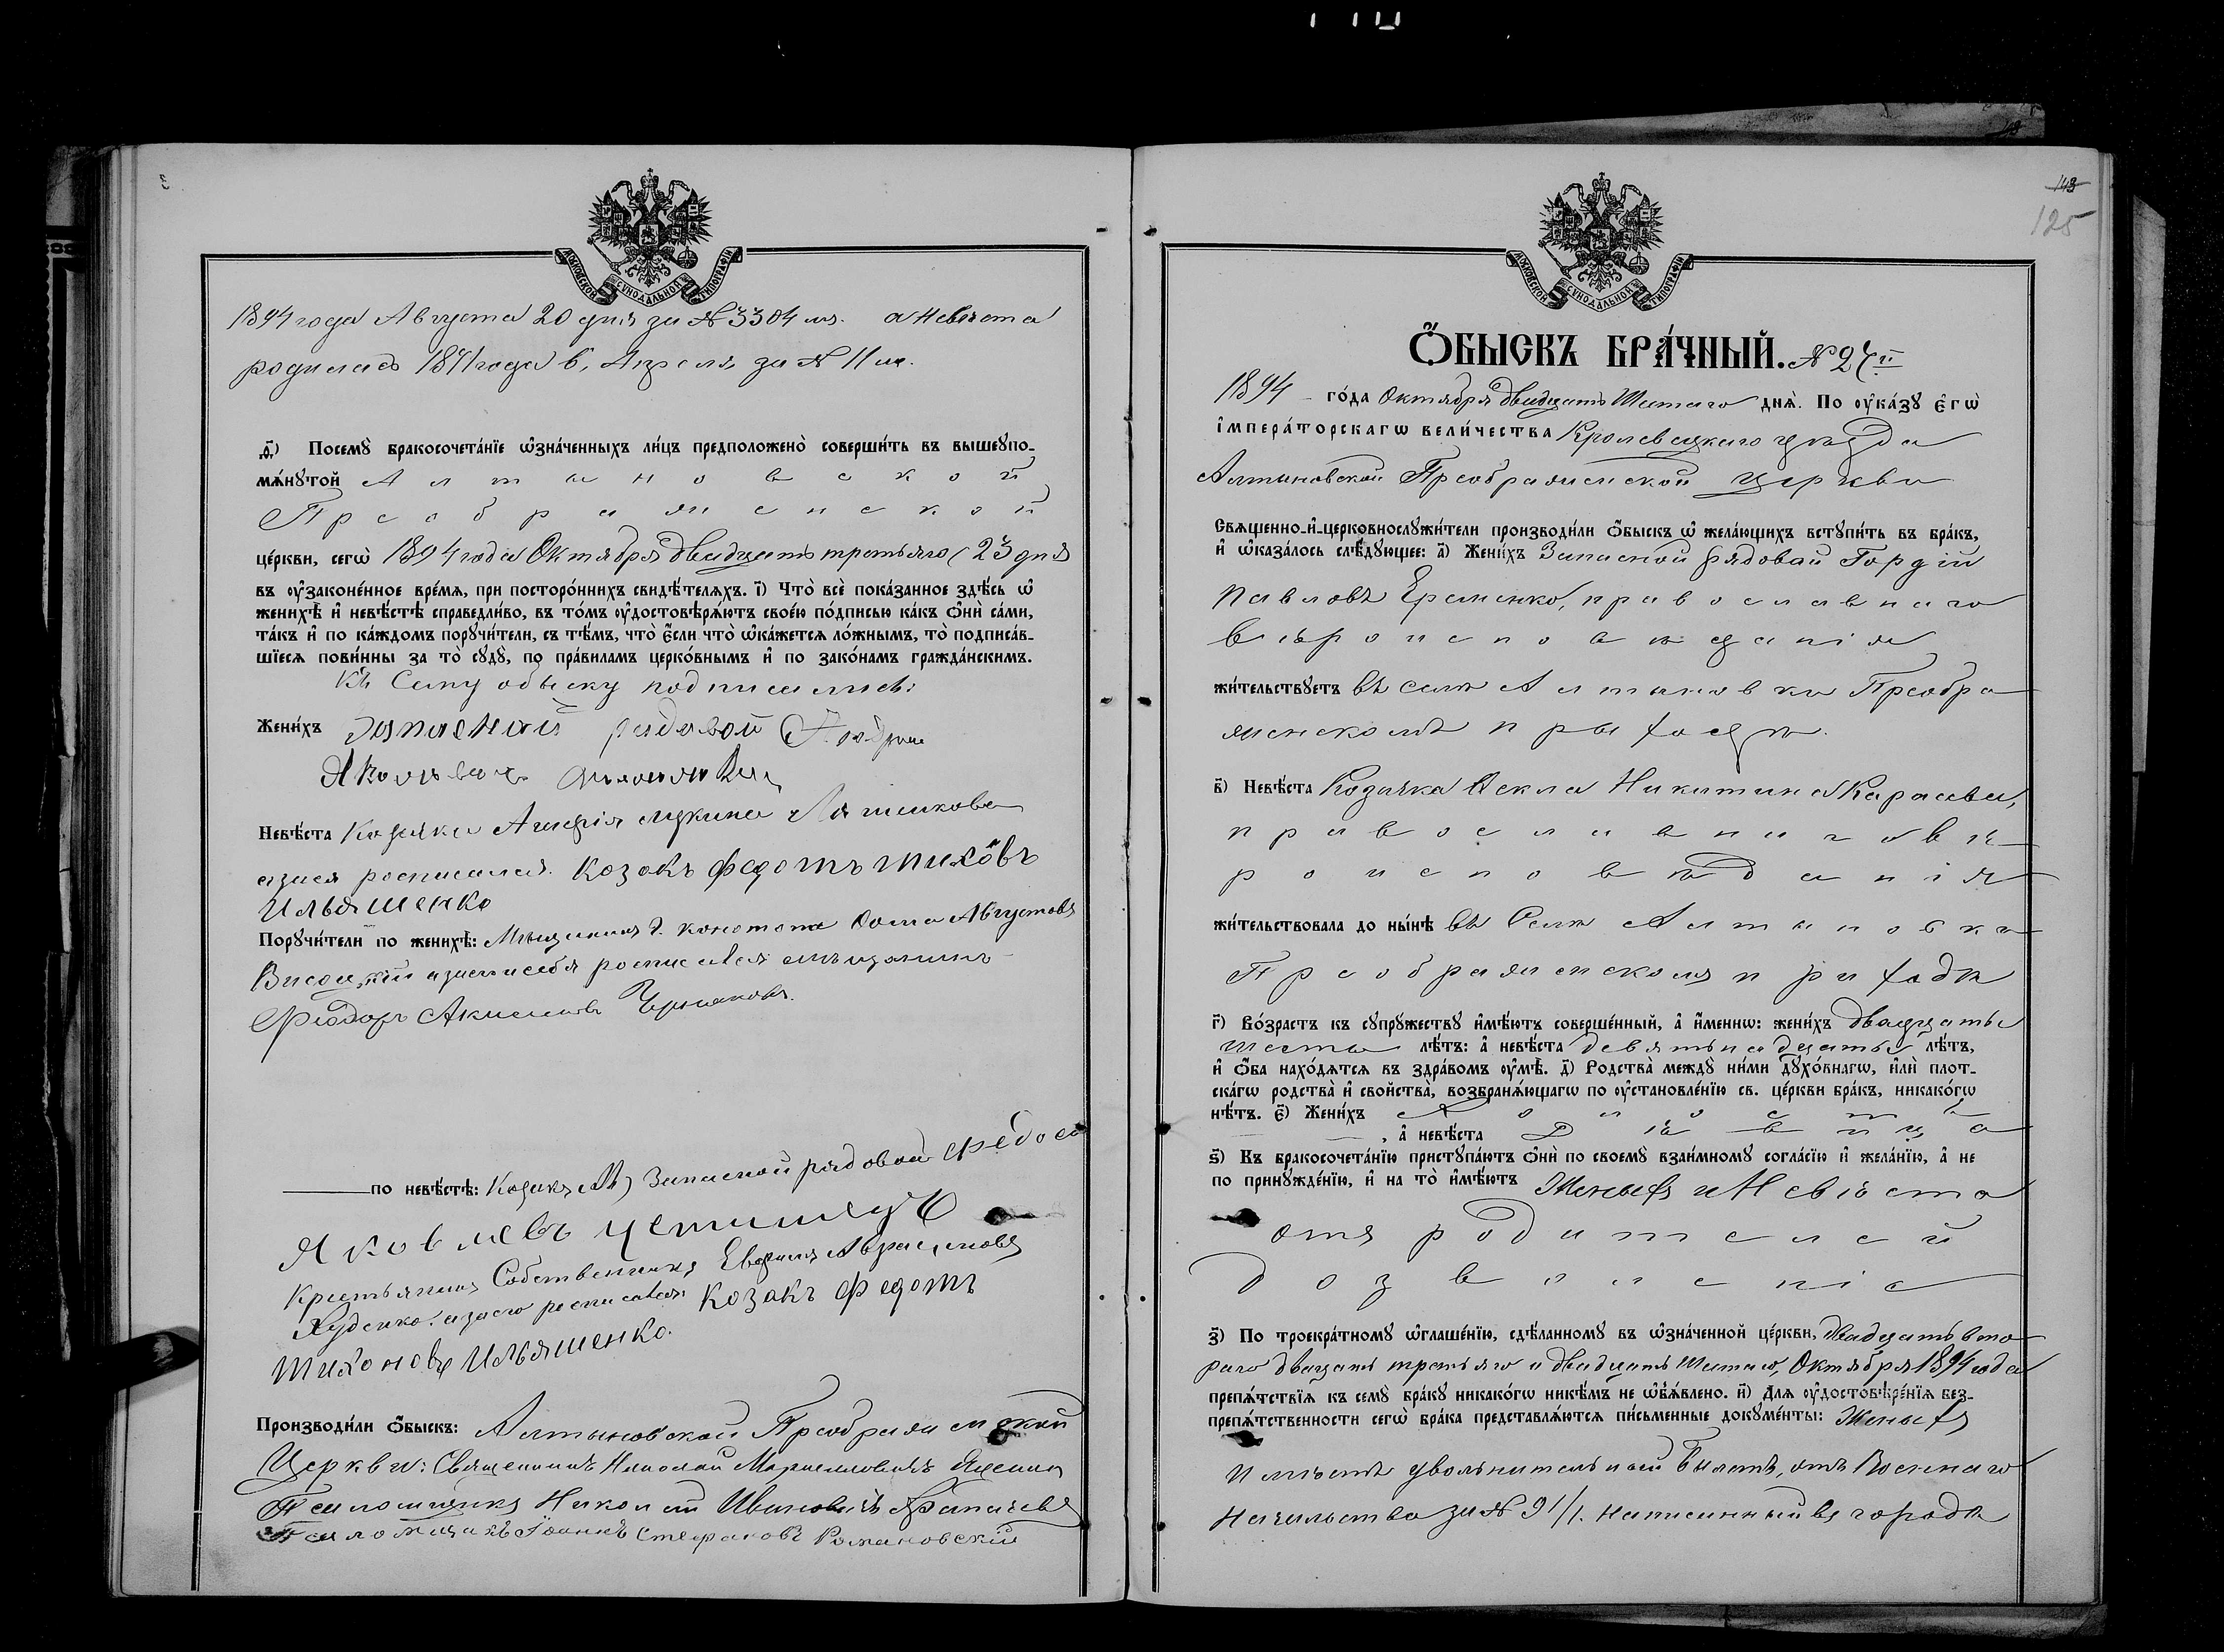 МОСКОВСКОЙ СѴНОДАЛЬНОЙ ТИПОГРАФІИ
1894 года Августа 20 дня за № 3304 мъ. а Невѣста
родилась 1871 года Апреля за № 11 м.
д҃і) Посемꙋ̀ бракосочета́нїе ѡ҆зна́ченныхъ ли́цъ предположено̀ соверши́ть въ вышеꙋпо-
мѧ́нꙋтой Алтыновской
Преображенской
це́ркви, сегѡ̀ 1894 года Октября двадцать третьяго (23 дня
въ ᲂу҆законе́нное вре́мѧ, при посторо́ннихъ свидѣ́телѧхъ. і҃) Что̀ всѐ пока́занное здѣ́сь ѡ҆
женихѣ̀ и҆ невѣ́стѣ справедли́во, въ то́мъ ᲂу҆достовѣрѧ́ютъ свое́ю по́дписью ка́къ ѻ҆нѝ са́ми,
та́къ и҆ по ка́ждомъ порꙋчи́тели, съ тѣ́мъ, что̀ є҆́сли что̀ ѡ҆ка́жетсѧ ло́жнымъ, то̀ подписа́в-
шїесѧ пови́нны за то̀ сꙋдꙋ̀, по пра́виламъ церко́внымъ и҆ по зако́намъ гражда́нскимъ.
Къ Сему обыску подписались:
Жени́хъ Запасной рядовой
Невѣ́ста Козачка Агафія Лукина
азнея росписался. Козакъ Федотъ Тихоновъ
Ильяшенко
Порꙋчи́тели по женихѣ̀: Мещанинъ г. Конотопа Фома Августовъ
Висоцкий росписался мещанинъ
Фіодоръ Акимовъ Черняковъ.
по невѣ́стѣ: Запасной рядовой Федосъ
Яковлевъ
Крестьянинъ Собственникъ Аврамовъ
росписался Козакъ Федотъ
Тихоновъ Ильяшенко.
Производи́ли ѻ҆́быскъ: Алтыновской Преображенской
Церкви: Священникъ Николай
Псаломщикъ Николай Ивановичъ
Псаломщикъ Іоаннъ Стефановъ Романовскій
143
125
МОСКОВСКОЙ СѴНОДАЛЬНОЙ ТИПОГРАФІИ
Ѻ҆́БЫСКЪ БРА́ЧНЫЙ. № 27й
1894 го́да Октября двадцать Шестаго днѧ̀. По ᲂу҆ка́зꙋ є҆гѡ̀
і҆мпера́торскагѡ вели́чества Кролевецкаго уѣзда
Алтыновской Преображенской церкви
Свѧще́нно-и҆-церковнослꙋжи́тели производи́ли ѻ҆́быскъ ѡ҆ жела́ющихъ встꙋпи́ть въ бра́къ,
и҆ ѡ҆каза́лось слѣ́дꙋющее: а҃) Жени́хъ Запасной рядовой Гордій
Павловъ Еременко, православнаго
вѣроисповѣданія
жи́тельствꙋетъ въ селѣ Алтыновки Преобра
женскомъ приходѣ.
в҃) Невѣ́ста Козачка Фекла Никитина Карасева,
православнаго вѣ-
роисповѣданія
жи́тельствовала до ны́нѣ въ Селѣ Алтыновки
Преображенскомъ приходѣ
г҃) Во́зрастъ къ сꙋпрꙋ́жествꙋ и҆мѣ́ютъ соверше́нный, а҆ и҆́меннѡ: жени́хъ двадцать
шесть лѣ́тъ: а҆ невѣ́ста девятнадцать лѣ́тъ,
и҆ ѻ҆́ба нахо́дѧтсѧ въ здра́вомъ ᲂу҆мѣ̀. д҃) Родства̀ междꙋ̀ ни́ми дꙋхо́внагѡ, и҆лѝ плот-
ска́гѡ родства̀ и҆ свойства̀, возбранѧ́ющагѡ по ᲂу҆становле́нїю св. це́ркви бра́къ, никако́гѡ
нѣ́тъ. є҃) Жени́хъ Холостъ
, а҆ невѣ́ста Дѣвица
ѕ҃) Къ бракосочета́нїю пристꙋпа́ютъ ѻ҆нѝ по своемꙋ̀ взаи́мномꙋ согла́сїю и҆ жела́нїю, а҆ не
по принꙋжде́нїю, и҆ на то̀ и҆мѣ́ютъ Женихъ и Невѣста
отъ родителей
дозволеніе
з҃) По троекра́тномꙋ ѡ҆глаше́нїю, сдѣ́ланномꙋ въ ѡ҆зна́ченной це́ркви, двадцать вто
раго двадцать третьяго и двадцать Шестаго, Октября 1894 года
препѧ́тствїѧ къ семꙋ̀ бра́кꙋ никако́гѡ никѣ́мъ не ѡ҆б̾ѧ́влено. и҃) Длѧ ᲂу҆достовѣре́нїѧ без-
препѧ́тственности сегѡ̀ бра́ка представлѧ́ютсѧ пи́сьменные докꙋме́нты: Женихъ
имѣетъ увольнительный билетъ, отъ Военнаго
Начальства за № 91/1. написанный въ городѣ